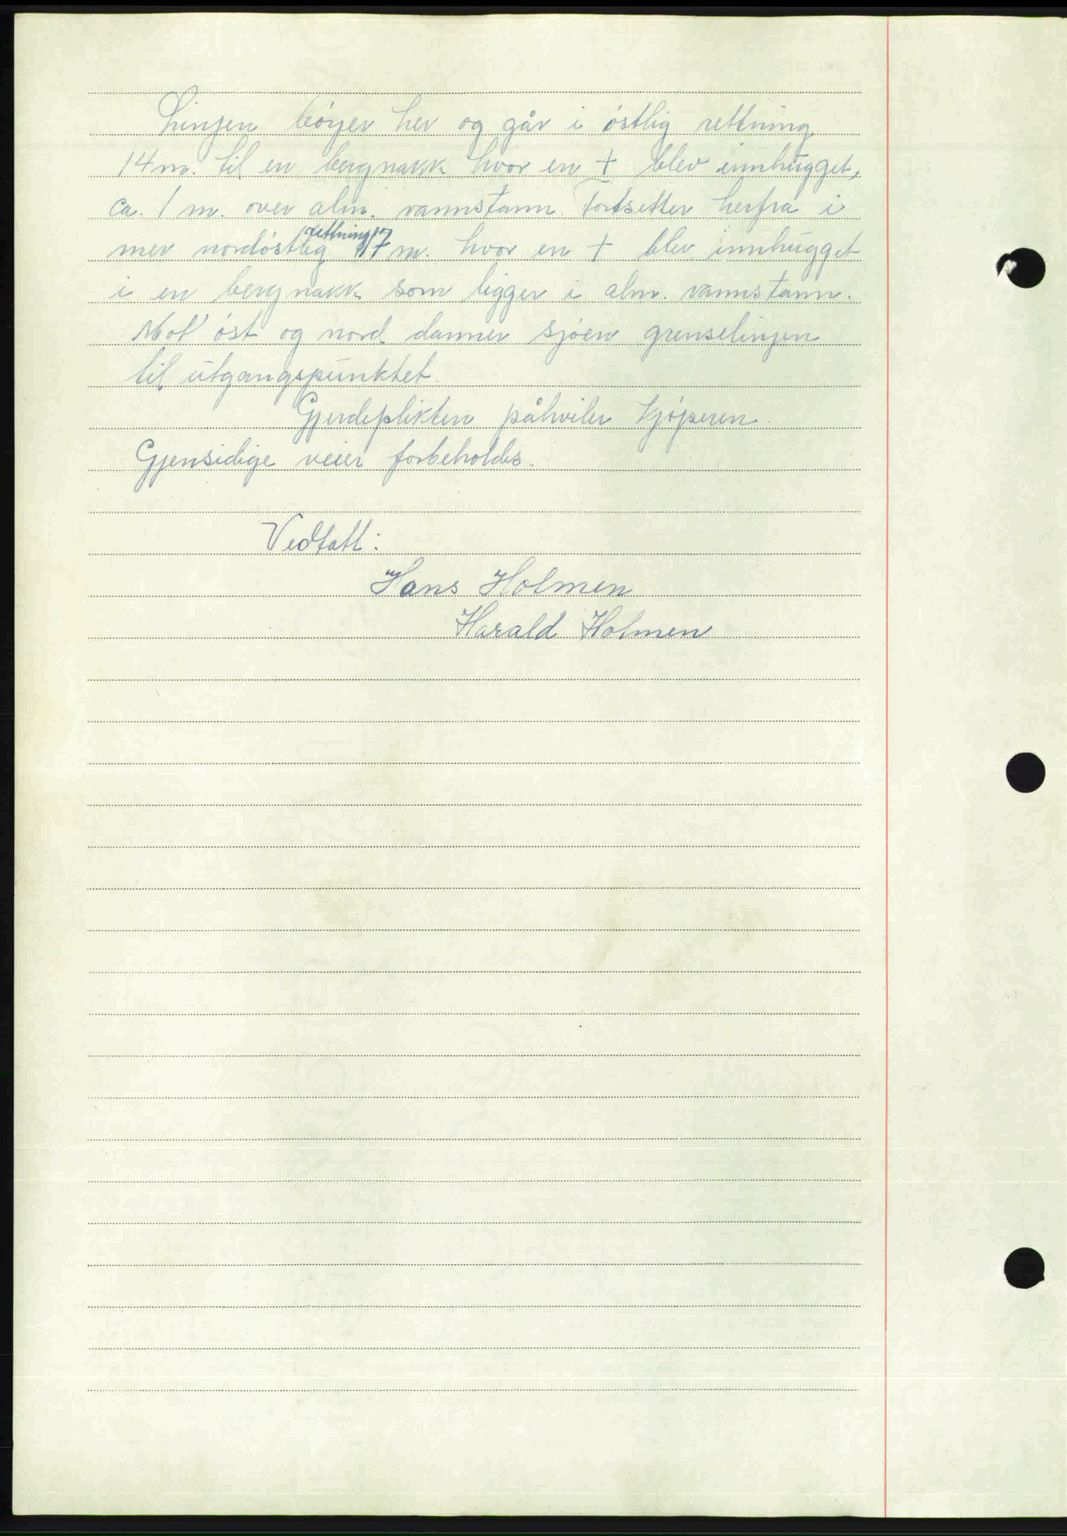 Linjen bøyer her og går i østlig rettning
14 m. til en bergnakk hvor en + blev innhugget,
ca. 1 m. over alm. vannstann. Fortsetter herfra i
mer nordøstlig rettning 17 m. hvor en + blev innhugget
i en bergnakk som ligger i alm. vannstann.
Mot øst og nord danner sjøen grenselinjen
til utgangspunktet.
Gjerdeplikten påhviler kjøperen.
Gjensidige veier forbeholdes.
Vedtatt:
Hans Holmen
Harald Holmen